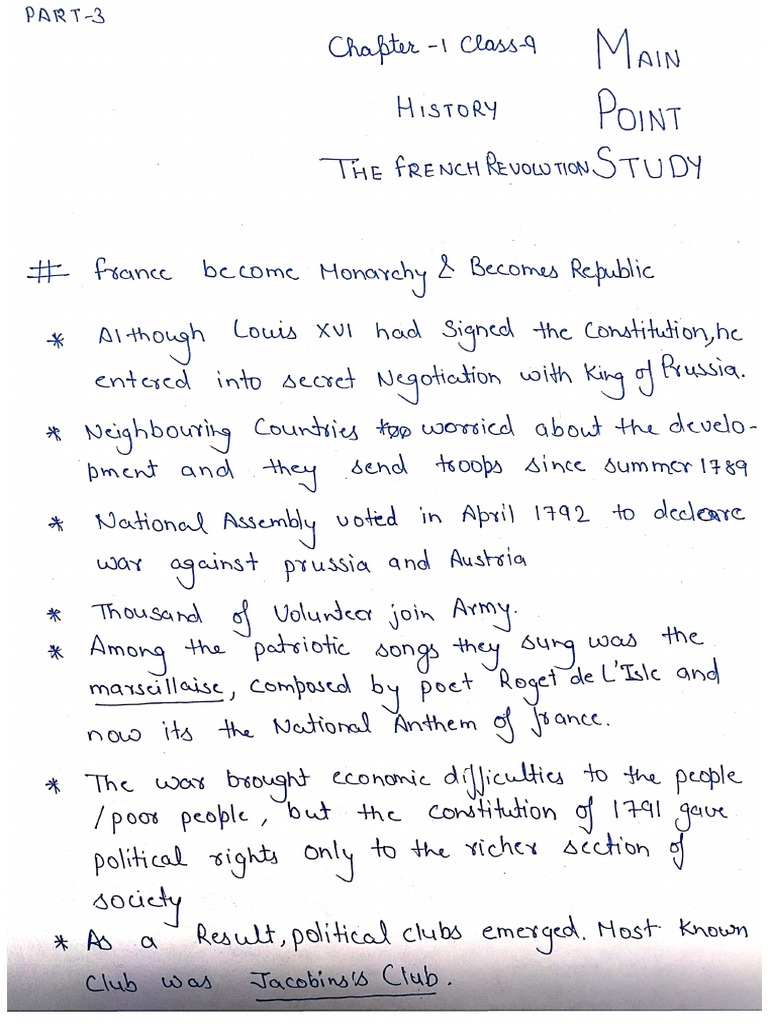 PART-3
Chapter-1 Class-9 MAIN
HISTORY POINT
THE FRENCH REVOLUTION STUDY
# France become Monarchy & Becomes Republic
* Although Louis XVI had Signed the Constitution, he
entered into secret Negotiation with King of Prussia.
* Neighbouring Countries too worried about the develo-
pment and they send troops since summer 1789
* National Assembly voted in April 1792 to decleare
war against prussia and Austria
* Thousand of Volunteer join Army.
* Among the patriotic songs they sung was the
marseillaise, composed by poet Roget de L'Isle and
now its the National Anthem of france.
* The war brought economic difficulties to the people
/poor people, but the constitution of 1791 gave
political rights only to the richer section of
society
* As a Result, political clubs emerged. Most Known
Club was Jacobins's Club.